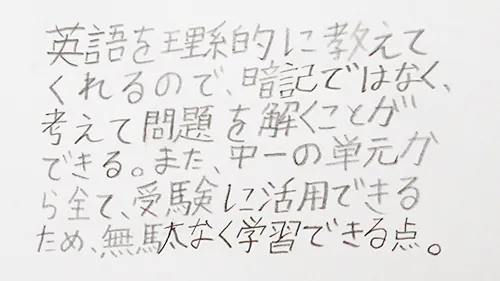 英語を理系的に教えて
くれるので、暗記ではなく、
考えて問題を解くことが
できる。また、中一の単元か
ら全て、受験に活用できる
ため、無駄なく学習できる点。